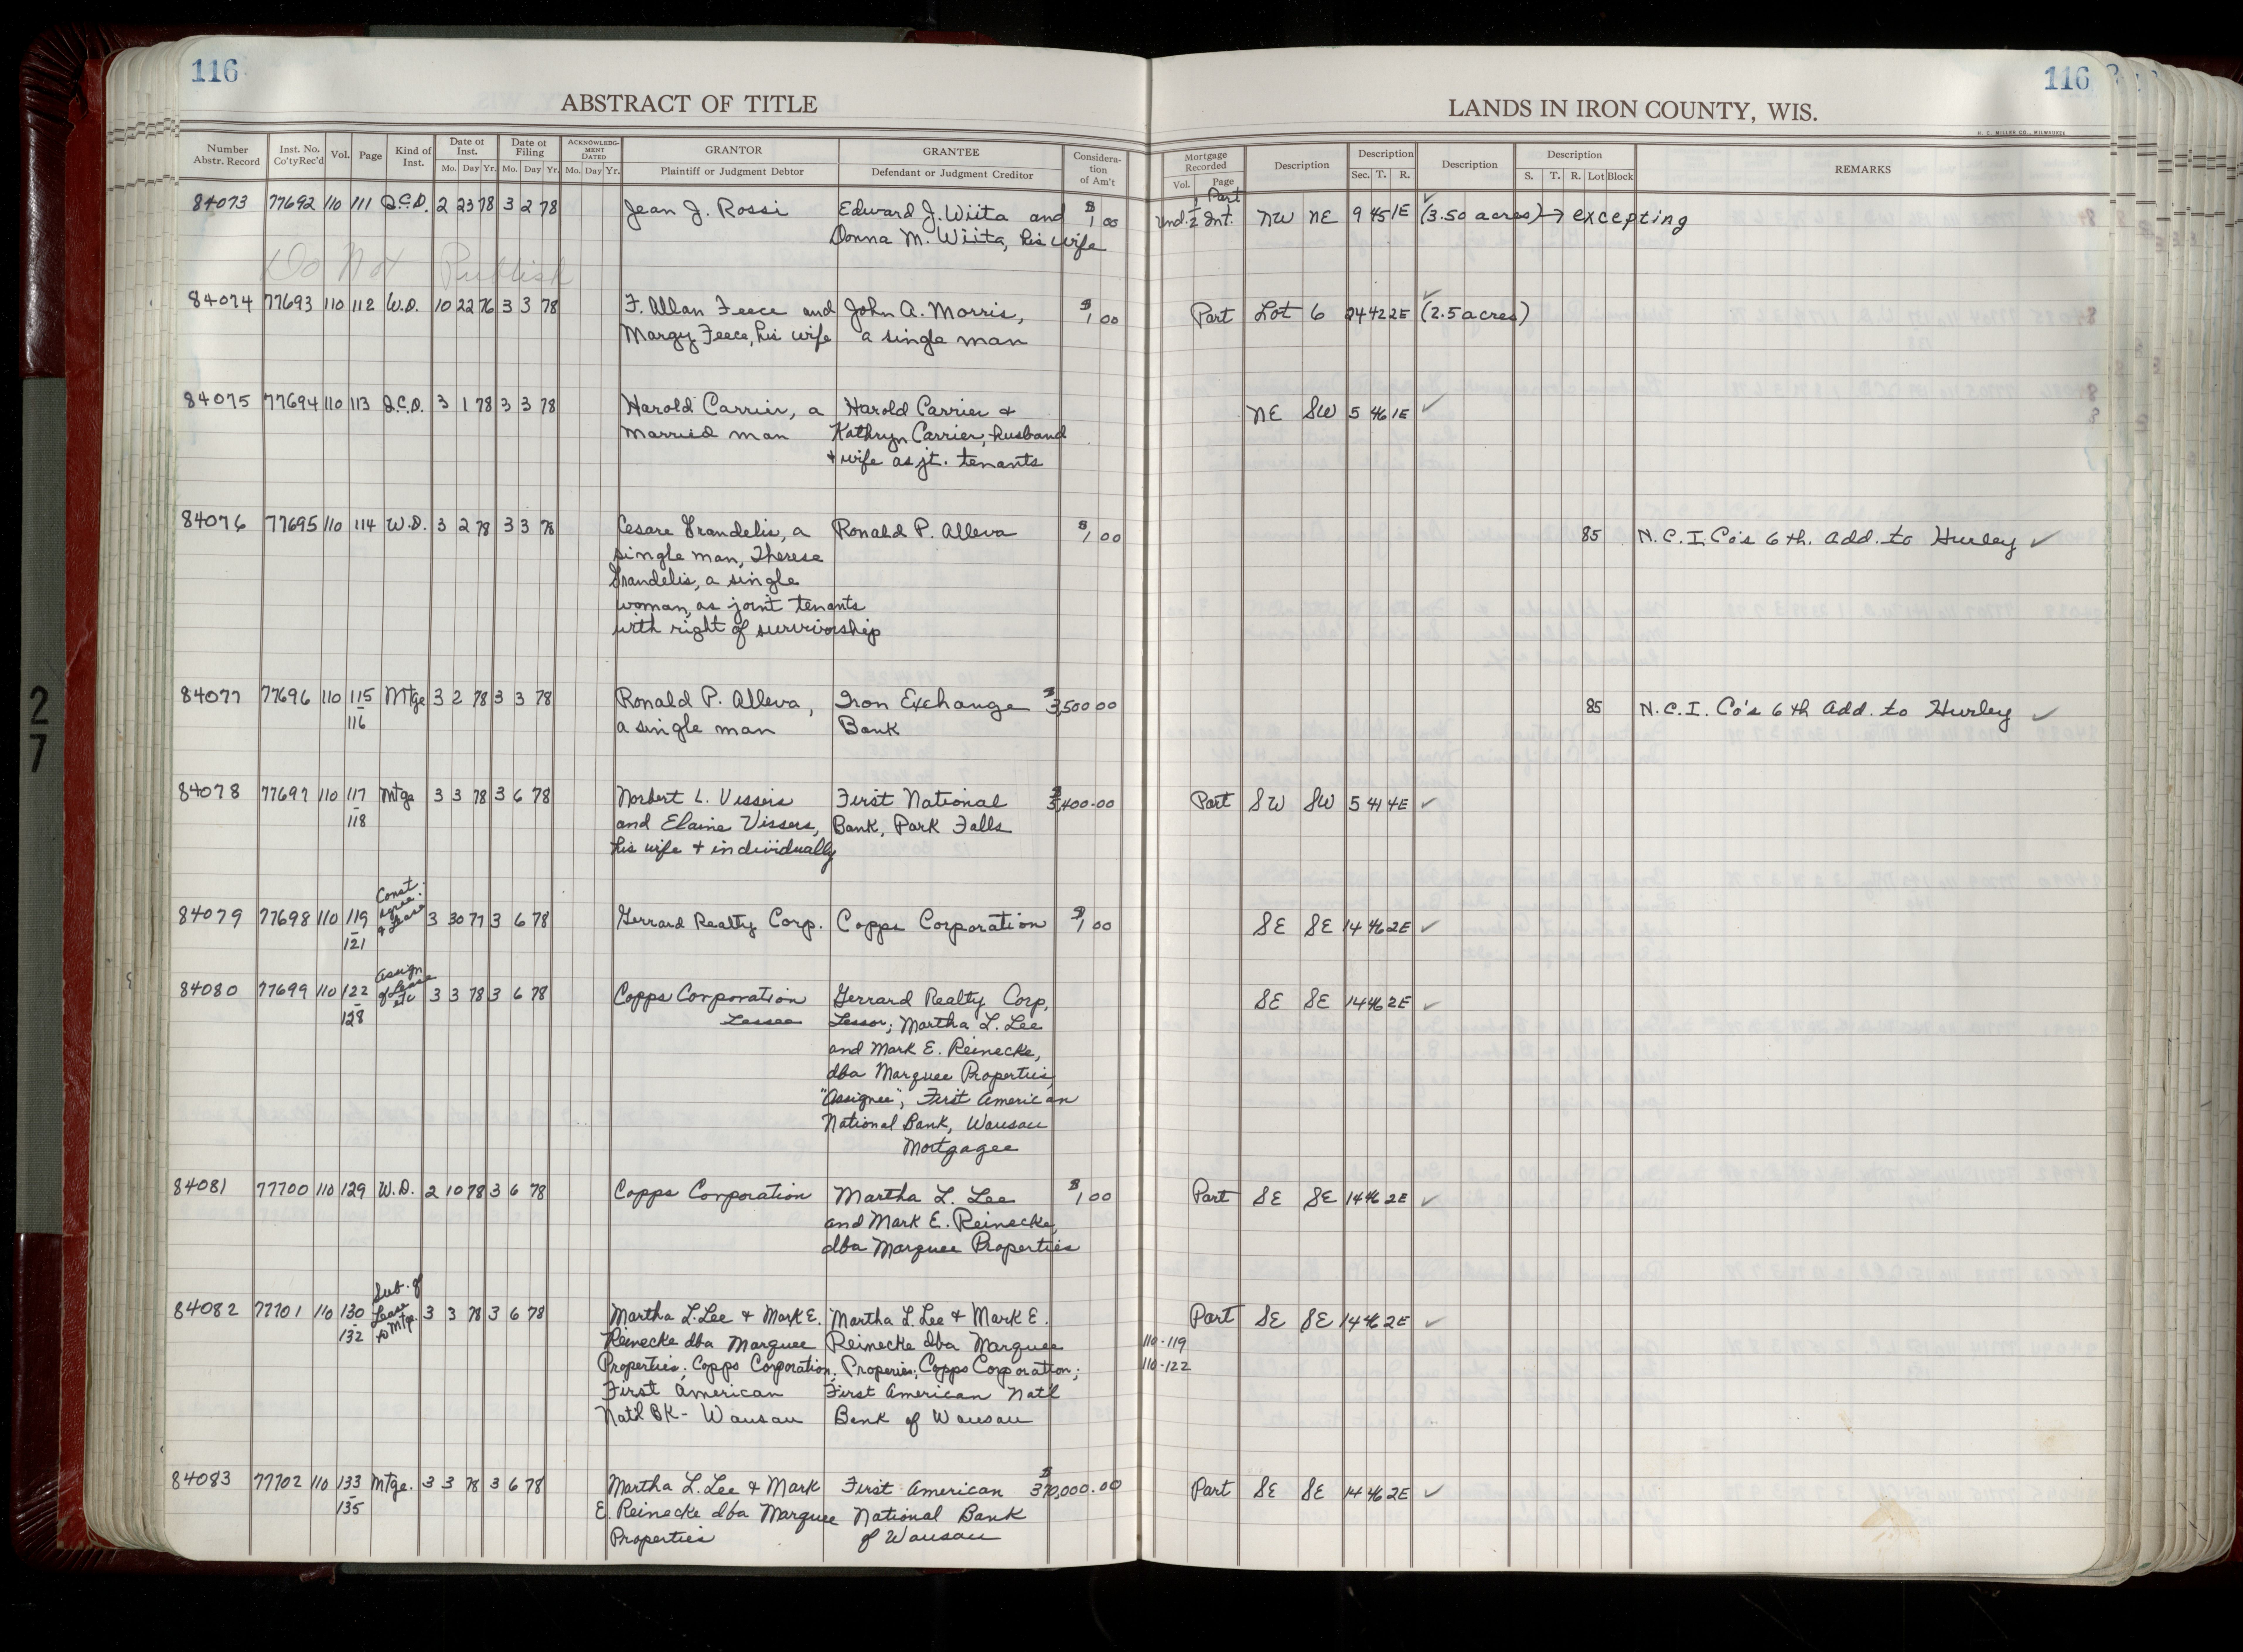 116
116
ABSTRACT OF TITLE
LANDS IN IRON COUNTY, WIS.
H. C. MILLER CO., MILWAUKEE
Number Abstr. Record Inst. No. Co'ty Rec'd Vol. Page Kind of Inst. Date of Inst. Mo. Day Yr. Date of Filing Mo. Day Yr. ACKNOWLEDGMENT DATED Mo. Day Yr. GRANTOR Plaintiff or Judgment Debtor GRANTEE Defendant or Judgment Creditor Consideration of Am't Mortgage Recorded Vol. Page Description Description Sec. T. R. Description Description S. T. R. Lot Block REMARKS
Part
84073 77692 110 111 Q.C.D. 2 23 78 3 2 78 Jean J. Rossi Edward J. Wiita and $1 00 Und. ½ Int. NW NE 9 45 1E ✓ (3.50 acres) → excepting
Donna M. Wiita, his wife
Do Not Publish
84074 77693 110 112 W.D. 10 22 76 3 3 78 F. Allan Feece and John A. Morris, $1 00 Part Lot 6 24 42 2E ✓ (2.5 acres)
Margy Feece, his wife a single man
84075 77694 110 113 Q.C.D. 3 1 78 3 3 78 Harold Carrier, a Harold Carrier + NE SW 5 46 1E ✓
married man Kathryn Carrier, husband
+ wife as jt. tenants
84076 77695 110 114 W.D. 3 2 78 3 3 78 Cesare Frandelis, a Ronald P. Alleva $1 00 85 N.C.I. Co's 6th. Add. to Hurley ✓
single man, Therese
Frandelis, a single
woman, as joint tenants
with right of survivorship
84077 77696 110 115 Mtge 3 2 78 3 3 78 Ronald P. Alleva, Iron Exchange $3,500 00 85 N.C.I. Co's 6th Add. to Hurley ✓
116 a single man Bank
84078 77697 110 117 Mtge 3 3 78 3 6 78 Norbert L. Vissers First National $3,400.00 Part SW SW 5 41 4E ✓
118 and Elaine Vissers, Bank, Park Falls
his wife + individually
Const.
agree.
84079 77698 110 119 + Lease 3 30 77 3 6 78 Gerrard Realty Corp. Copps Corporation $1 00 SE SE 14 46 2E ✓
121
Assign
84080 77699 110 122 of Lease etc 3 3 78 3 6 78 Copps Corporation Gerrard Realty Corp, SE SE 14 46 2E ✓
128 Lessee Lessor; Martha L. Lee
and Mark E. Reinecke,
dba Marquee Properties,
"Assignee"; First American
National Bank, Wausau
Mortgagee
84081 77700 110 129 W.D. 2 10 78 3 6 78 Copps Corporation Martha L. Lee $1 00 Part SE SE 14 46 2E ✓
and Mark E. Reinecke,
dba Marquee Properties
Sub. of
84082 77701 110 130 Lease 3 3 78 3 6 78 Martha L. Lee + Mark E. Martha L. Lee + Mark E. Part SE SE 14 46 2E ✓
132 to Mtge. Reinecke dba Marquee Reinecke dba Marquee 110-119
Properties; Copps Corporation; Properies; Copps Corporation; 110-122
First American First American Nat'l
Nat'l BK - Wausau Bank of Wausau
84083 77702 110 133 Mtge. 3 3 78 3 6 78 Martha L. Lee + Mark First American $370,000.00 Part SE SE 14 46 2E ✓
135 E. Reinecke dba Marquee National Bank
Properties of Wausau
27